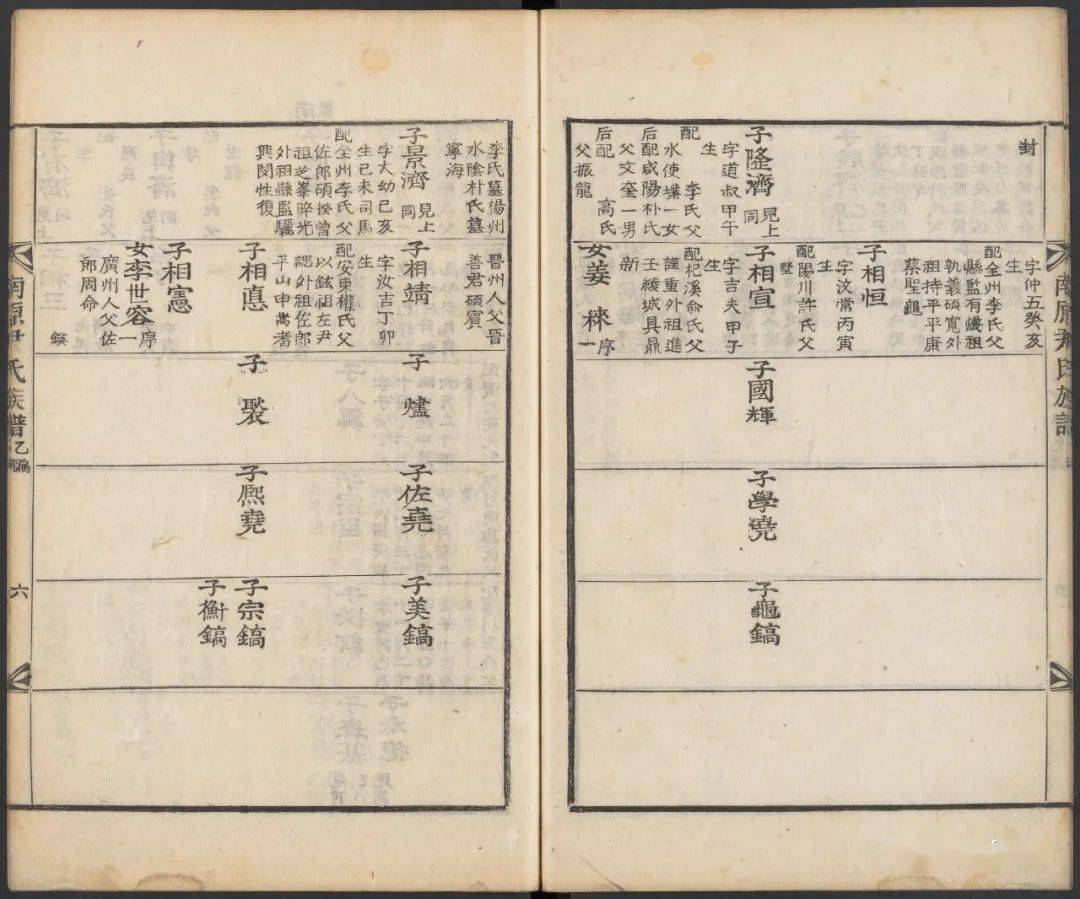 封
子隆濟
見上
同
字道叔甲午
生
配 李氏父
水使堞一女
后配咸陽朴氏
父文奎一男
后配 高氏
父振龍
字仲五癸亥
生
配全州李氏父
縣監有爕祖
執義碩寬外
祖持平平康
蔡聖龜
子相恒
字汶常丙寅
生
配陽川許氏父
墅
子相宣
字吉夫甲子
生
配杞溪俞氏父
謹重外祖進
壬綾城具鼎
新
女姜 秝
序
一
子國輝
子學堯
子龜鎬
南原尹氏族譜
李氏墓楊州
水陰朴氏墓
寧海
子景濟
見上
同
字大幼己亥
生己未司馬
配全州李氏父
佐郎碩揆曾
祖芝峯晬光
外祖縣監驪
興閔性復
晉州人父晉
善君碩賓
子相靖
字汝吉丁卯
生
配安東權氏父
以鋐祖左尹
諰外祖佐郎
平山申嵩耆
子相悳
子相憲
女李世容
序
一
廣州人父佐
郎周命
鍈
子 爐
子 聚
子佐堯
子熙堯
子美鎬
子宗鎬
子衡鎬
南原尹氏族譜
乙編
六